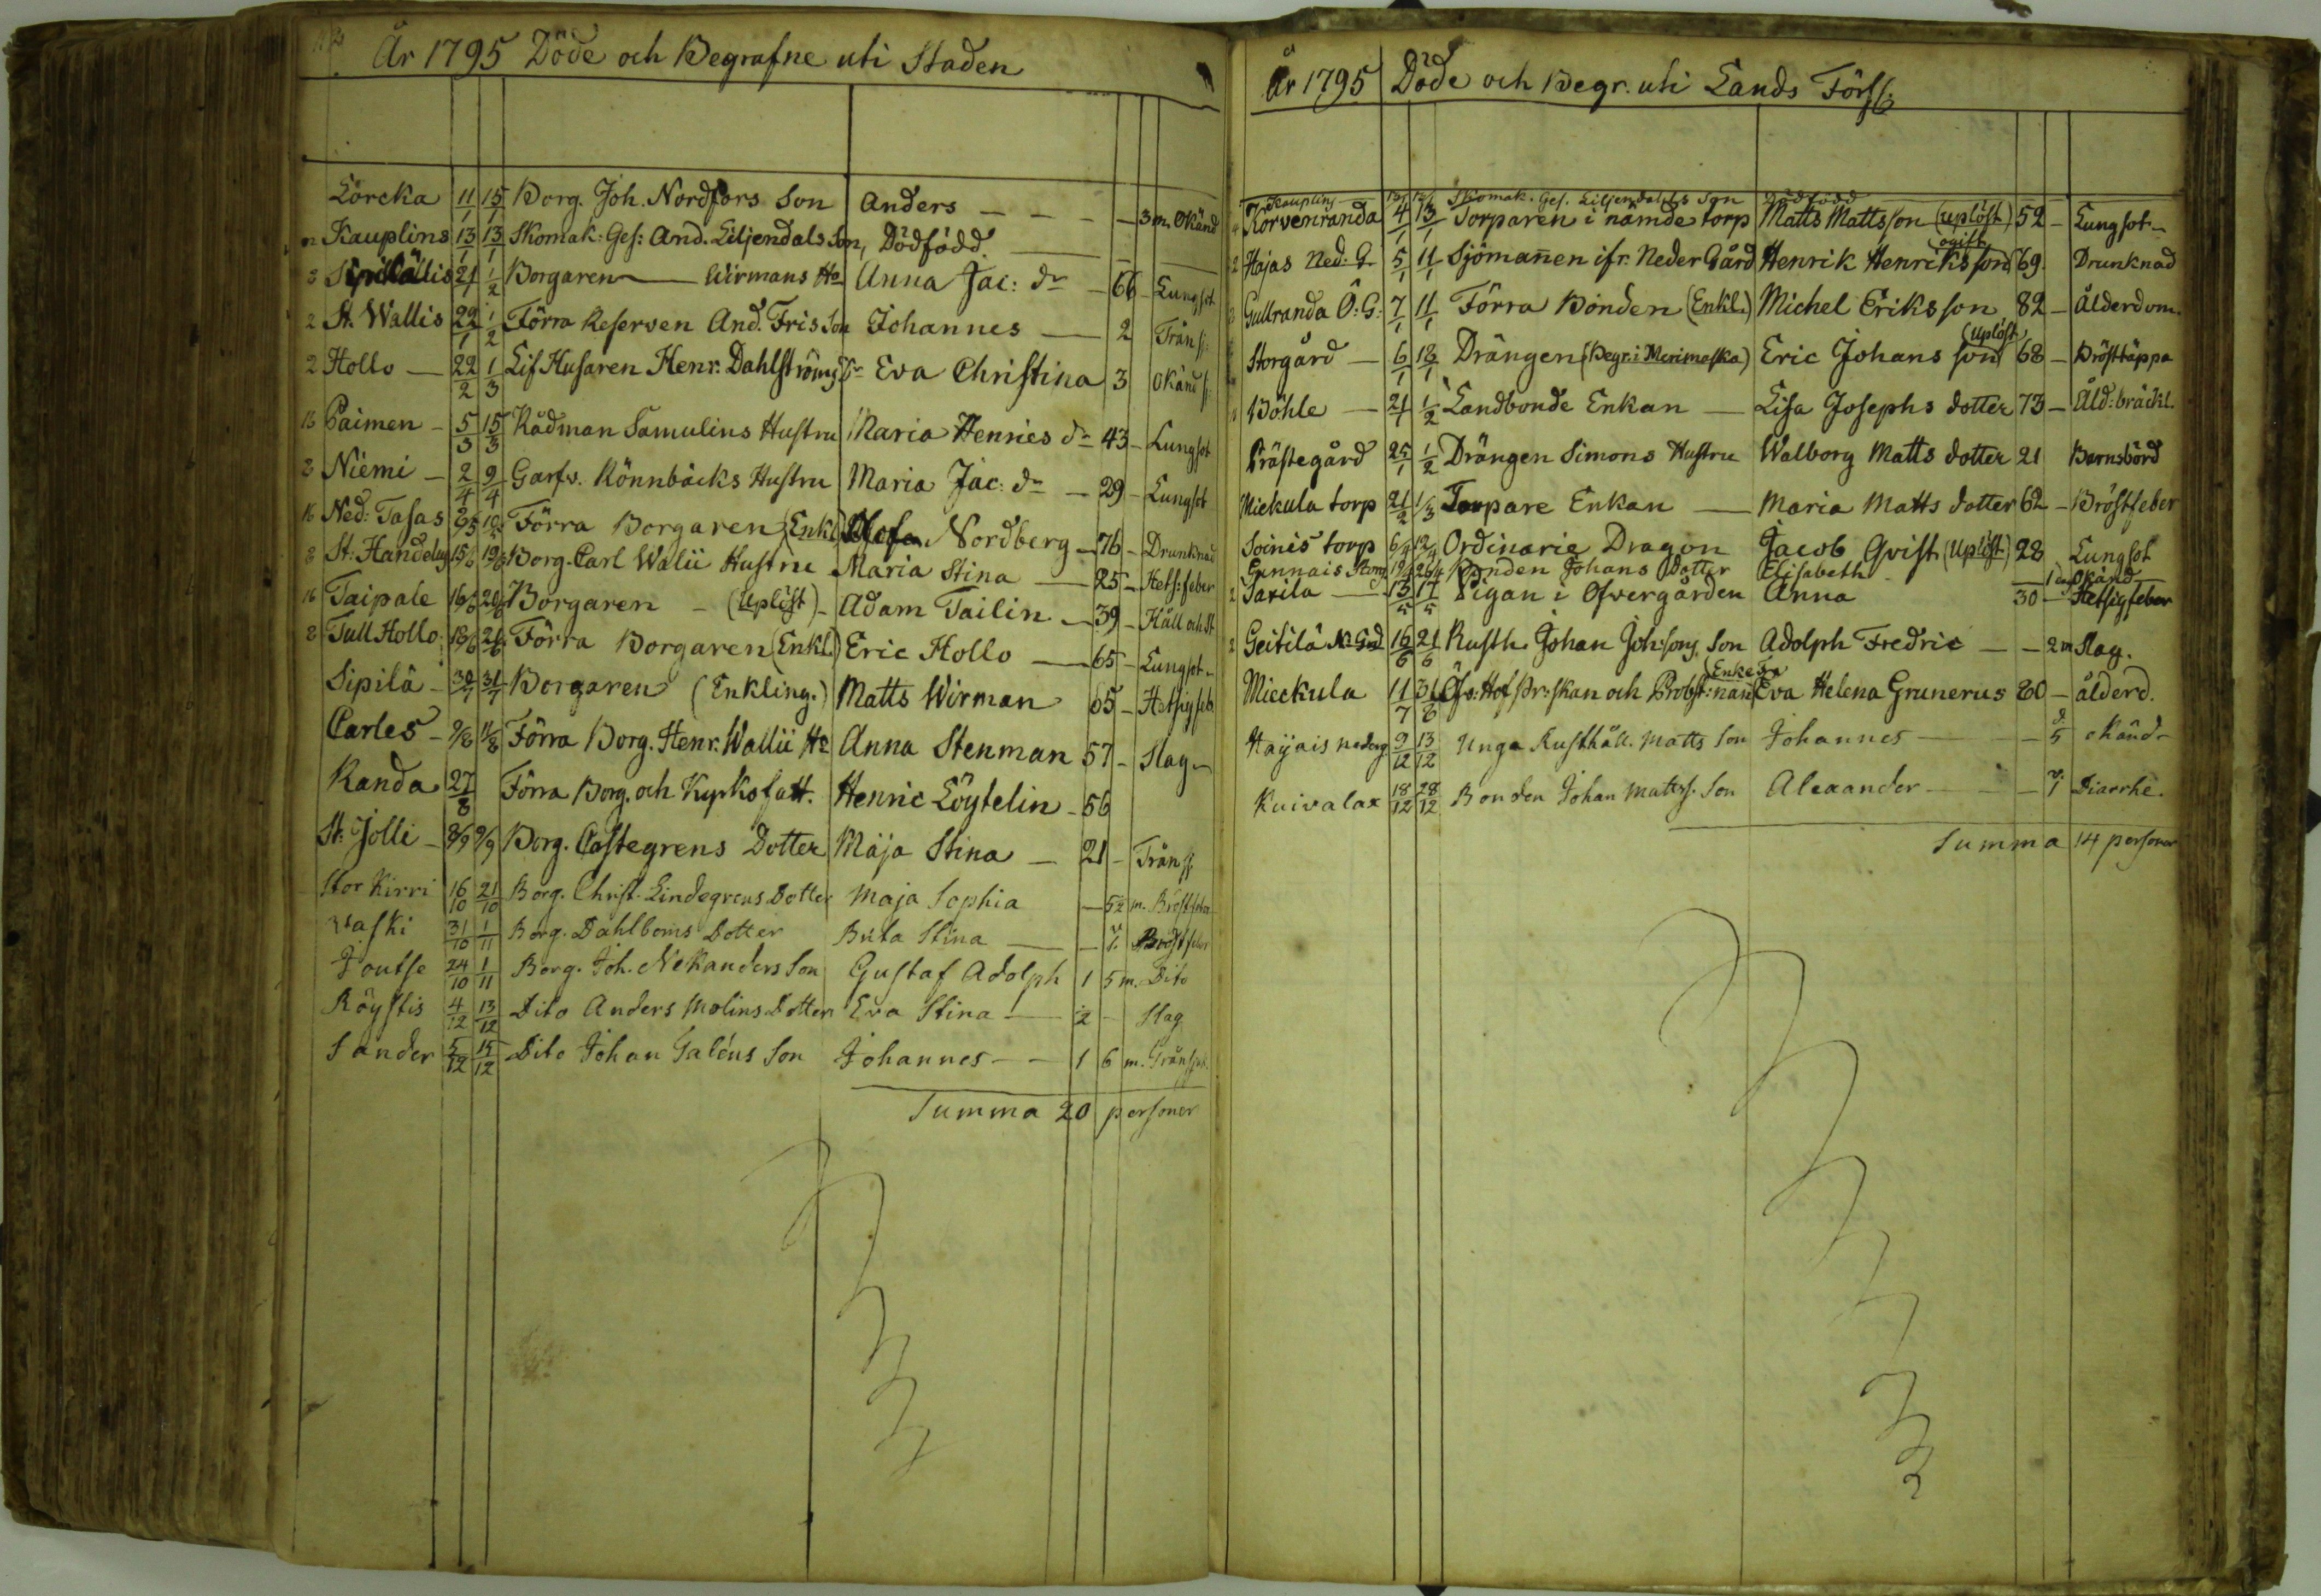 År 1795 Döde och Begrafne uti Staden
Lörcka 11/1 15/1 Borg. Joh. Nordfors Son Anders - - - - 3 m. Okänd
Kauplins 13/1 13/1 Skomak: Ges: And. Liljendals Son, Dödfödd
21/1 1/2 Borgaren Wirmans Ha Anna Jac: dr - 66 - Lungsot
2 St. Wallis 22/1 1/2 Förra Reserven And. Fris Son Johannes 2 Trånsj.
2 Hollo 22/2 1/3 Lif Husaren Henr. Dahlströms Eva Christina 3 Okänd s.
Paimen - 5/3 15/3 Rådman Samulins Hustru Maria Henries dr 43 - Lungsot
Niemi - 2/4 9/4 Garfv. Rönnbäcks Hustru Maria Jac: dr - 29 - Lungsot
16 Ned: Tasas Förra Borgaren (Enkl.) Nordberg - 76 - Drunknad
St: Handelug 15/6 19/6 Borg. Carl Walii Hustru Maria Stina - 25 - Hets: feber
16 Taipale 16/6 Borgaren - (Uplöst) - Adam Tailin - 39 - Håll och St
Tull Hollo 18/6 21/6 Förra Borgaren (Enkl.) Eric Hollo - 65 - Lungsot -
Sipilä - 30/7 31/7 Borgaren (Enkling.) Matts Wirman 65 - Hetsig feb.
Carles - 9/8 11/8 Förra Borg. Henr. Wallii Ha Anna Stenman 57 - Slag -
Randa 27/8 Förra Borg. och Kyrkofatt. Henric Löytelin - 56
St. Jolli - 8/9 9/9 Borg. Castegrens Dotter Maja Stina - 21 - Trånsj.
Stor Kirri 16/10 21/10 Borg. Christ. Lindegrens Dotter Maja Sophia - 5½ m. Bröstfeber
Waski 31/10 1/11 Borg. Dahlboms Dotter Brita Stina - Bröstfeber
Joutse 24/10 1/11 Borg. Joh. Nekanders Son Gustaf Adolph 1 5 m. Dito
Röystis 4/12 13/12 Dito Anders Molins Dotter Eva Stina 2 - Slag
Sander 5/12 15/12 Dito Johan Galéns Son Johannes - - 1 6 m. Trånsjuk.
Summa 20 personer
År 1795 Döde och Begr. uti Lands Förs:
Kauplins Skomak. Ges. Liljendahls Son Dödfödd
Korvenranda 4/1 13/1 Torparen i nämde torp Matts Mattsson (uplöst) 52 - Lungsot -
ogift
2 Hajas Ned: G. 5/1 11/1 Sjömannen ifr. Neder Gård Henrik Henriksson 69 Drunknad
Gullranda Ö: G: 7/1 11/1 Förra Bonden (Enkl.) Michel Eriksson 82 - Ålderdom.
(Uplöst)
Storgård - 6/1 18/1 Drängen (Begr. i Merimaska) Eric Johansson 68 - Bröstäppa
Böhle - 21/1 1/2 Landbonde Enkan - Lisa Josephs dotter 73 - Åld: bräckl.
Prästegård 25/1 1/2 Drängen Simons Hustru Walborg Matts dotter 21 Barnsbörd
Mickula torp 21/2 1/3 Torpare Enkan - Maria Matts dotter 62 - Bröstfeber
Soinis torp 6/4 12/4 Ordinarie Dragon Jacob Qvist (Uplöst) 28 Lungsot
Gunnais 19/4 26/4 Bonden Johans Dotter Elisabeth - 1 dag Okänd
Saxila - 13/5 17/5 Pigan i Öfvergården Anna 30 - Hetsig feber
2 Geitilä 16/6 21/6 Rusth. Johan Joh:sons Son Adolph Fredric - - 2 m Slag.
Enke Fr
Miekkula 11/7 31/8 Öfv: Hof Pr:skan och Probst:nan Eva Helena Grunerus 80 - ålderd.
Haijais nederg 9/12 13/12 Unga Rusthåll. Matts Son Johannes - - d. 5 okänd -
Kuivalax 18/12 28/12 Bonden Johan Mattss. Son Alexander - - Diarrhe.
Summa 14 personer